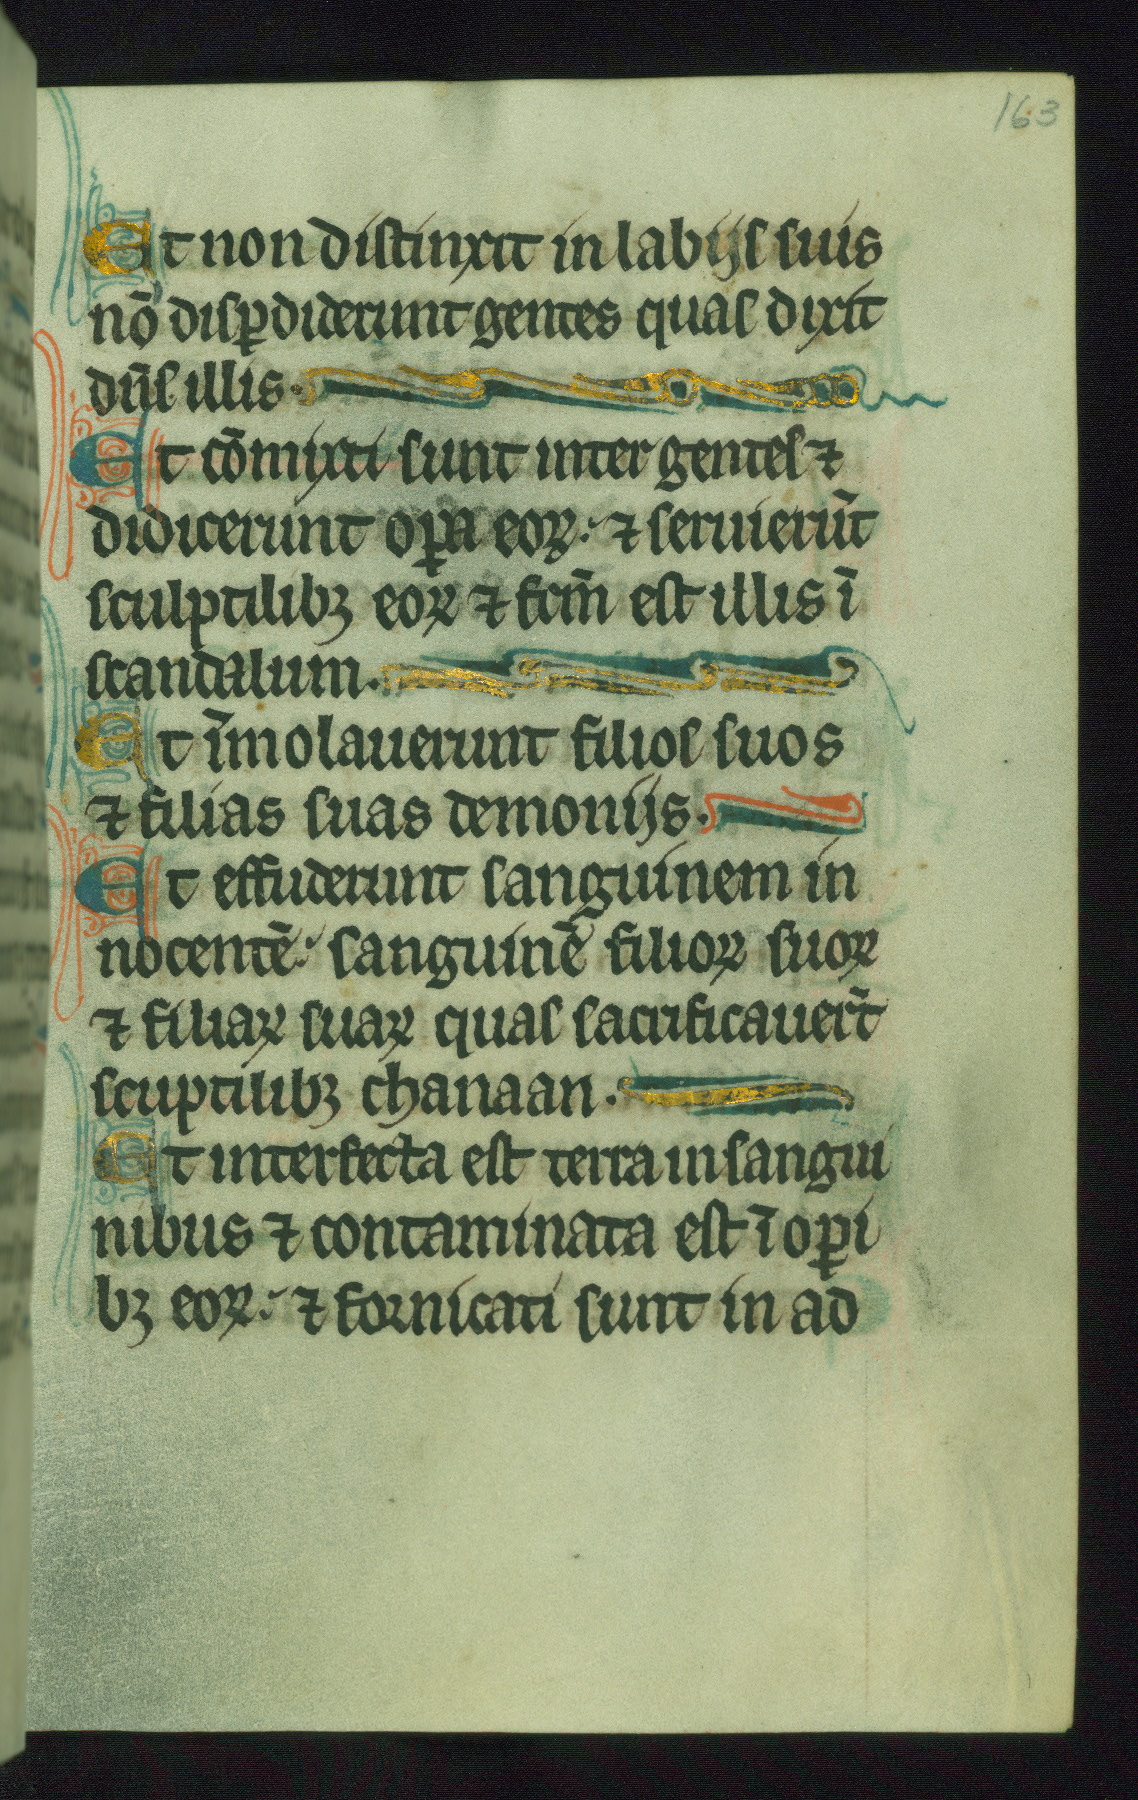 163
Et non distinxit in labijs suis
nō disꝑdiderunt gentes quas dixit
dn̄s illis.
Et cōmixti sunt inter gentes ⁊
didicerunt oꝑa eoꝝ: ⁊ seruierūt
sculptilibꝫ eoꝝ ⁊ fc̄m est illis ī
scandalum.
Et īmolauerunt filios suos
⁊ filias suas demonijs.
Et effuderunt sanguinem in
nocentē: sanguinē filioꝝ suoꝝ
⁊ filiaꝝ suaꝝ quas sacrificauer̄t
scuptilibꝫ chanaan.
Et interfecta est terra in sangui
nibus ⁊ contaminata est ī oꝑi
bꝫ eoꝝ: ⁊ fornicati sunt in ad